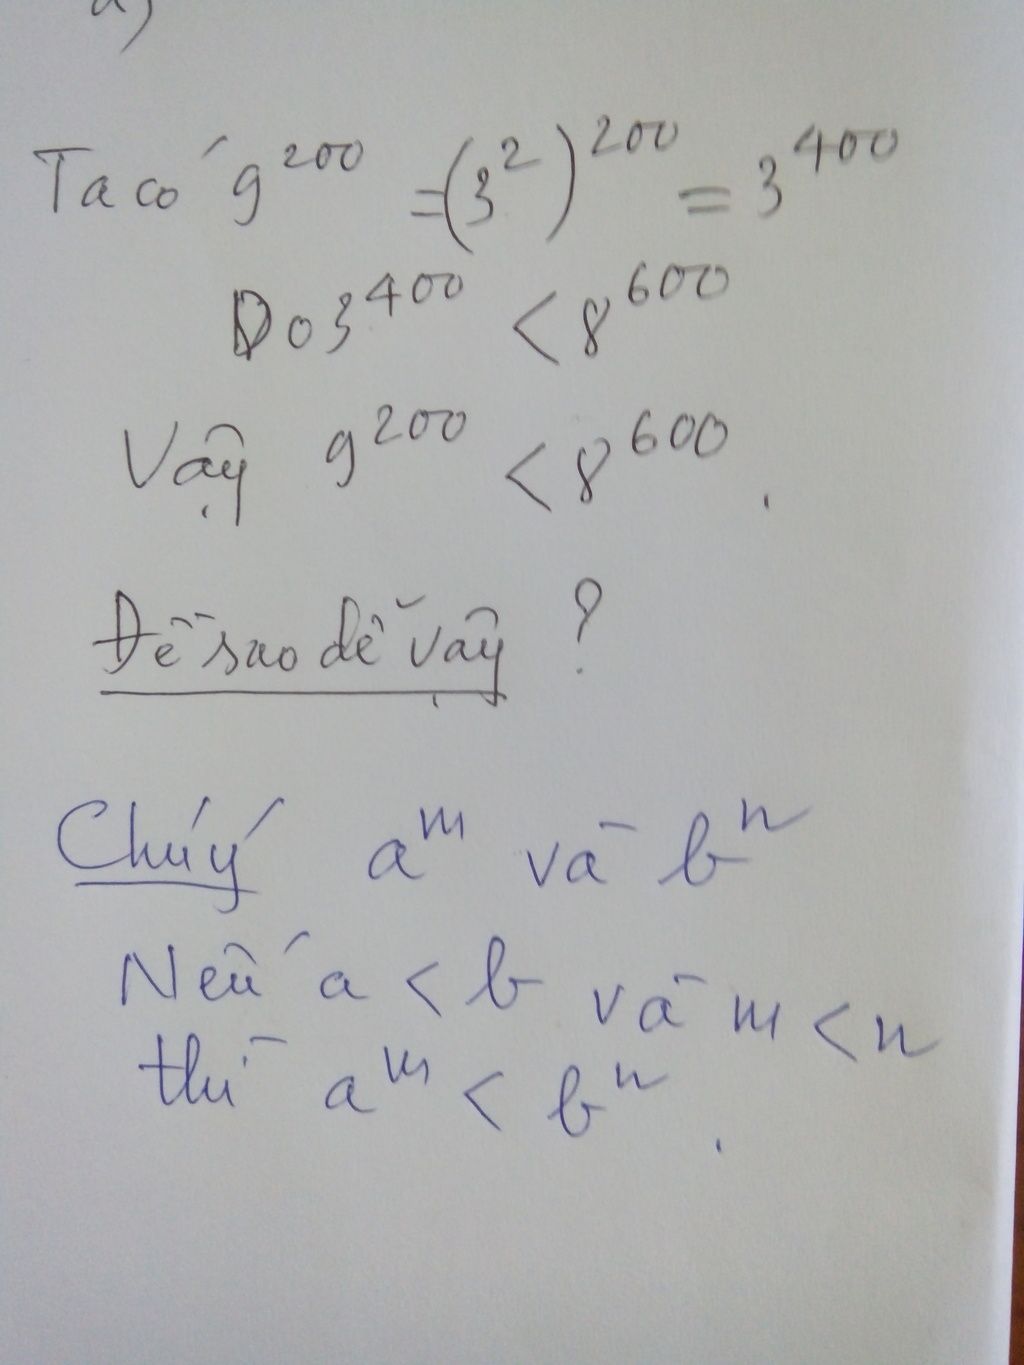 a)
Ta có 9^200 = (3^2)^200 = 3^400
Do 3^400 < 8^600
Vậy 9^200 < 8^600.
Đề sao dễ vậy ?
Chú ý a^m và b^n
Nếu a < b và m < n
thì a^m < b^n.